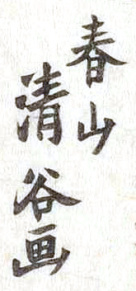 春山
清谷画